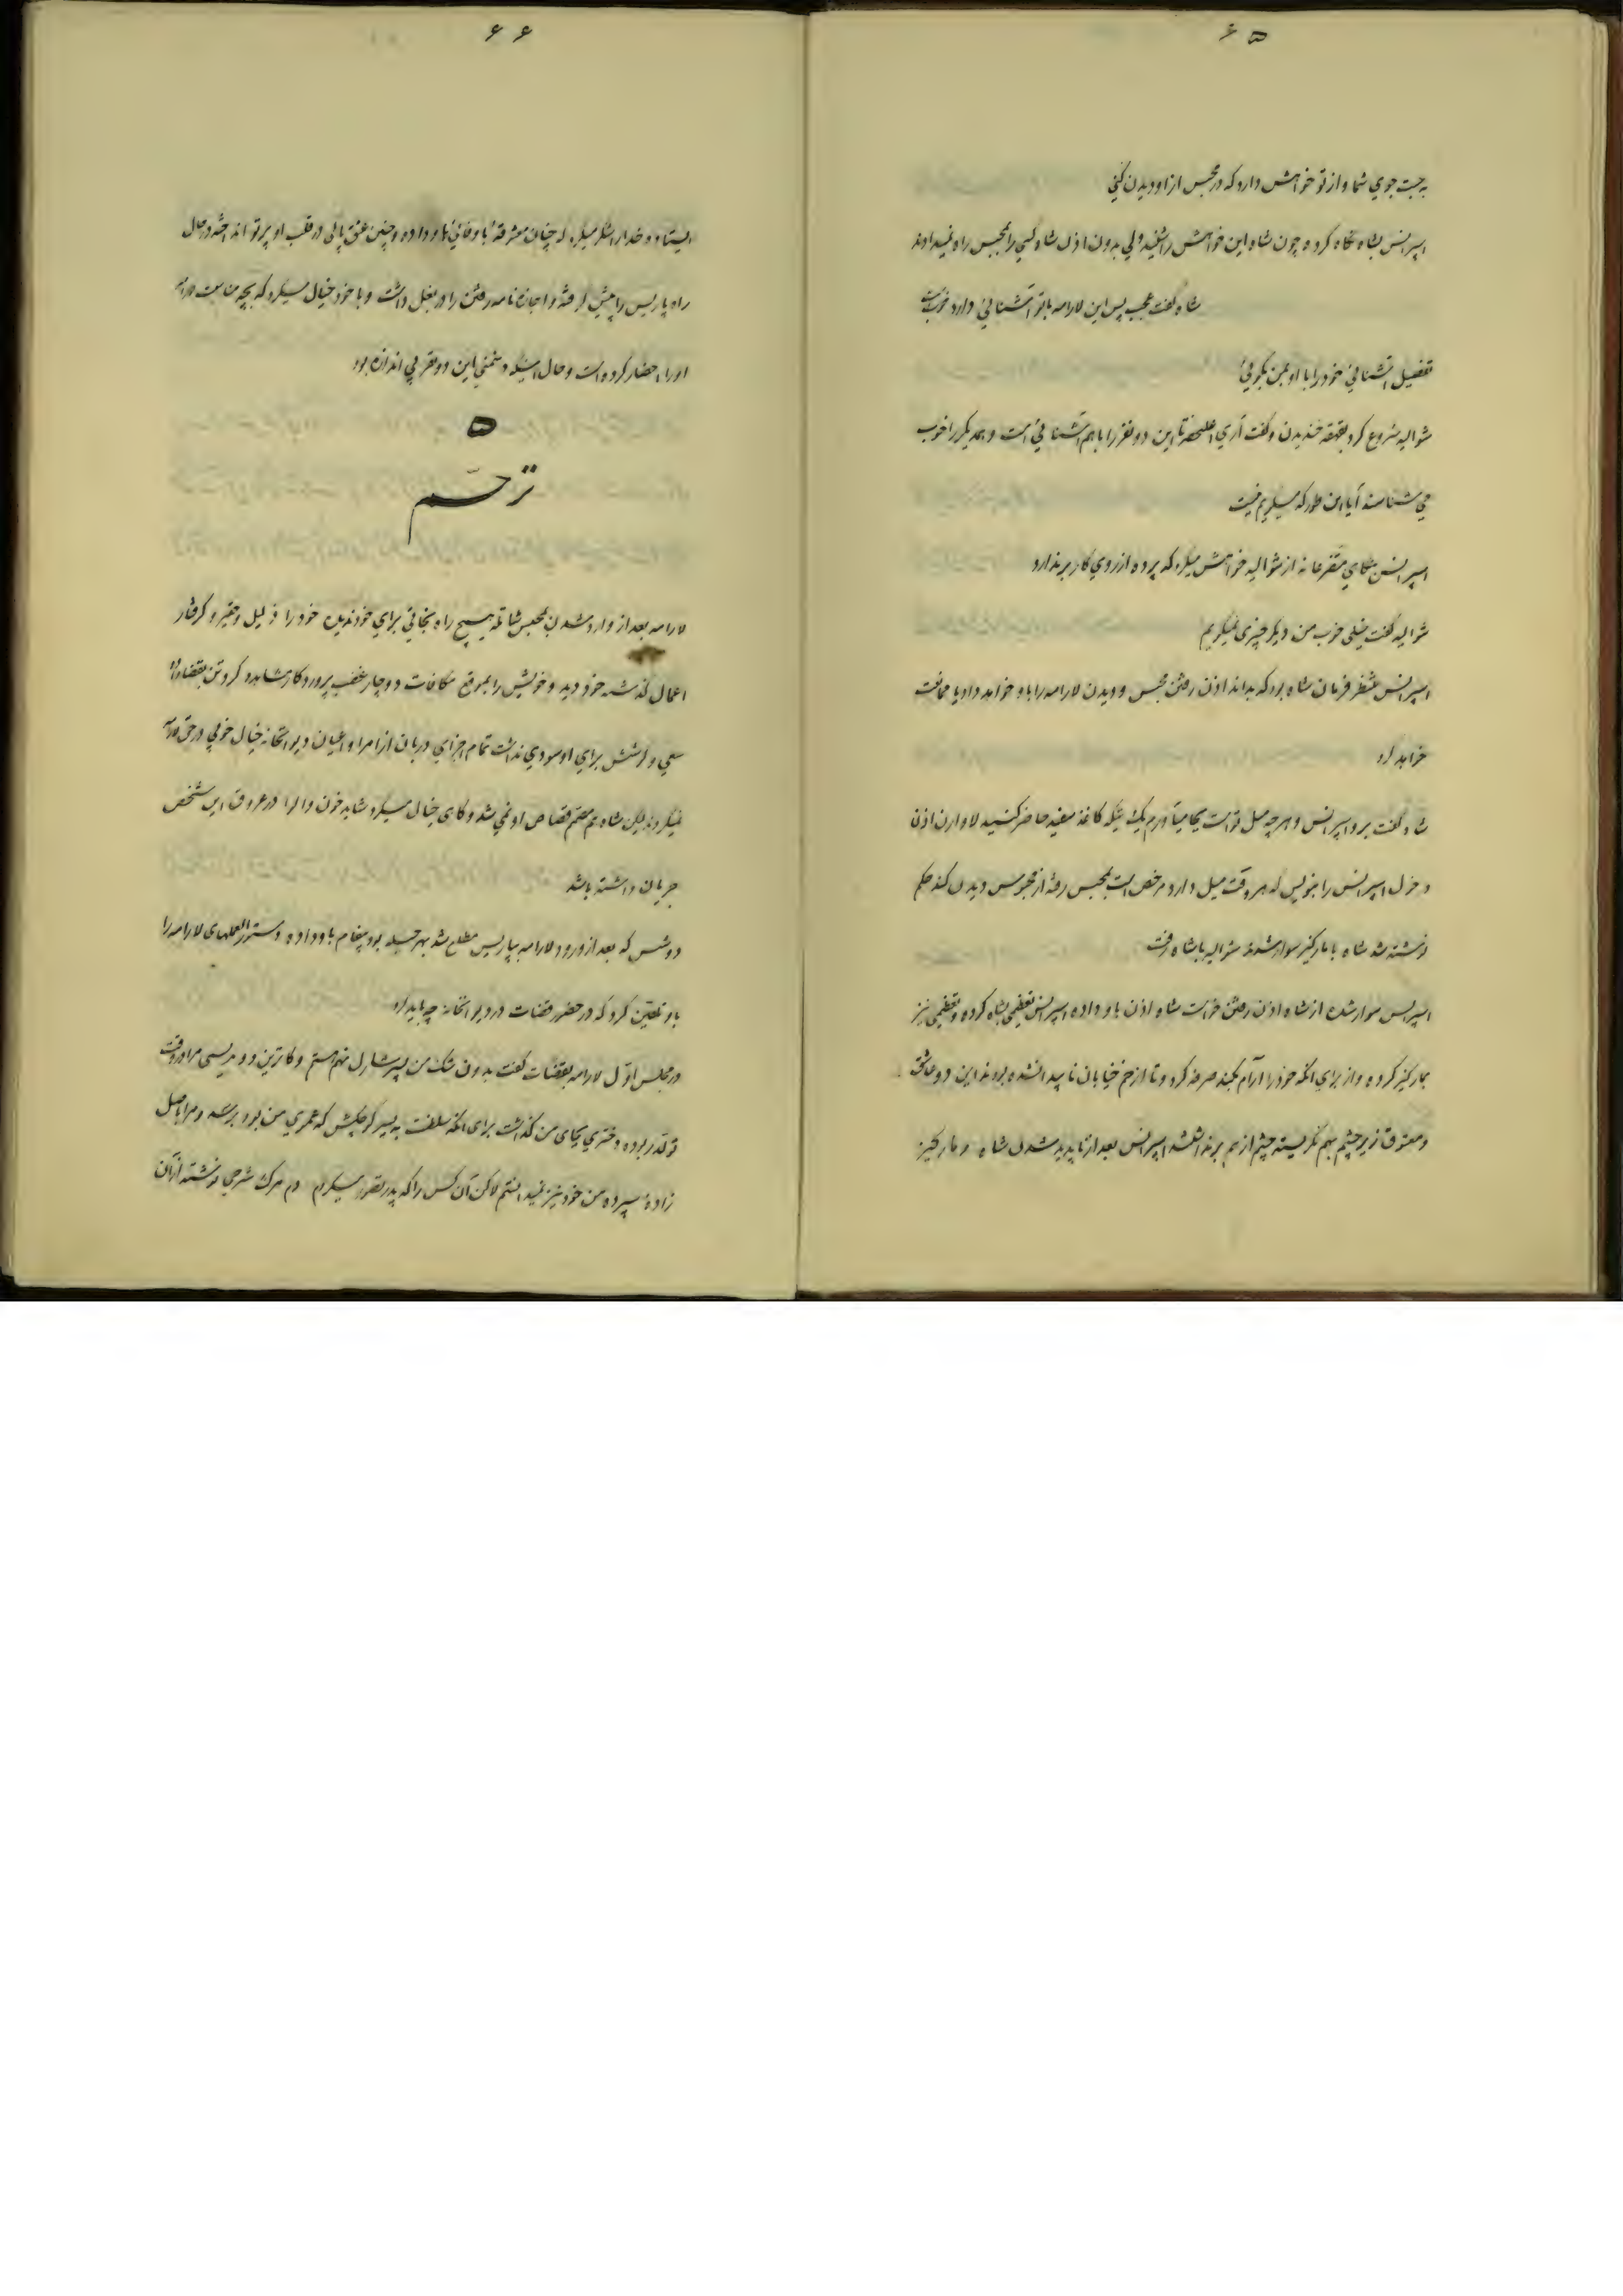 ۶۵
به جست جوي شما و از تو خواهش دارد که در محبس از او ديدن کني
اسپرانس بشاه نگاه کرده چون شاه اين خواهش را شنيد ولي بدون اذن شاه کسي را بمحبس راه نميدادند
شاه گفت عجب پس اين لارامه با تو آشنائي دارد خوبست
تفصيل آشنائي خود را با او بمن بگوئي
شواليه شروع کرد بقهقه خنديدن و گفت آري اعليحضرتا اين دو نفر را با هم آشنائي است و همديگر را خوب
مي شناسند آيا اين طور که ميگويم نيست
اسپرانس بنگاهي متضرعانه از شواليه خواهش ميکرد که پرده از روي کار برندارد
شواليه گفت خيلي خوب من ديگر چيزي نميگويم
اسپرانس منتظر فرمان شاه بود که بداند اذن رفتن محبس و ديدن لارامه را باو خواهد داد يا ممانعت
خواهد کرد
شاه گفت برو اسپرانس و هر چه ميل تو است بجا ميآورم يک تيکه کاغذ سفيد حاضر کنيد لاوارن اذن
دخول اسپرانس را بنويس که هر وقت ميل دارد مرخص است بمحبس رفته از محبوس ديدن کند حکم
نوشته شد شاه با مارکيز سوار شدند شواليه با شاه رفت
اسپرانس سوار شده از شاه اذن رفتن خواست شاه اذن باو داده اسپرانس تعظيمي بشاه کرده و تعظيمي نيز
بمارکيز کرده و از براي آنکه خود را آرام بکند صرفه کرد و تا از خم خيابان ناپيدا نشده بودند اين دو عاشق
و معشوق زير چشم بهم نگريسته چشم از هم برنداشتند اسپرانس بعد از ناپديد شدن شاه و مارکيز
۶۶
ايستاده و خدا را شکر ميکرد که چنان معشوقه با وفائي باو داده و چنين عشق پاکي در قلب او پرتو انداخته در حال
راه پاريس را پيش گرفته و اجازه نامه رفتن را در بغل داشت و با خود خيال ميکرد که بچه مناسبت لارامه
او را احضار کرده است و حال آنکه دشمني اين دو نفر بي اندازه بود
۵
ترحّم
لارامه بعد از وارد شدن بمحبس شاتله هيچ راه نجاتي براي خود نديده خود را ذليل و حقير و گرفتار
اعمال گذشته خود ديد و خويش را بموقع مکافات دوچار غضب پروردگار مشاهده کرد و تن بقضا داد
سعي و کوشش براي او سودي نداشت تمام اجزاي دربان از امرا و اعيان و ديوانخانه خيال خوبي در حق لارامه
نميکردند ليکن شاه هم مصمّم قصاص او نمي شد و گاهي خيال ميکرد شايد خون والوا در عروق اين شخص
جريان داشته باشد
دوشس که بعد از ورود لارامه بپاريس مطلع شد بهر حيله بود پيغام باو داده دستورالعملهاي لارامه را
باو تلقين کرد که در حضور قضات در ديوانخانه چه بايد کرد
در مجلس اوّل لارامه بقضات گفت بدون شک من پسر شارل نهم هستم و کاترين دومديسي مرا در وقت
تولّد ربوده دختري بجاي من گذاشت براي آنکه سلطنت به پسر کوچکش که عموي من بود برسد و مرا باصل
زاده سپرده من خود نيز نميدانستم لاکن آن کس را که پدر تصور ميکردم دم مرگ شرحي نوشته از آن